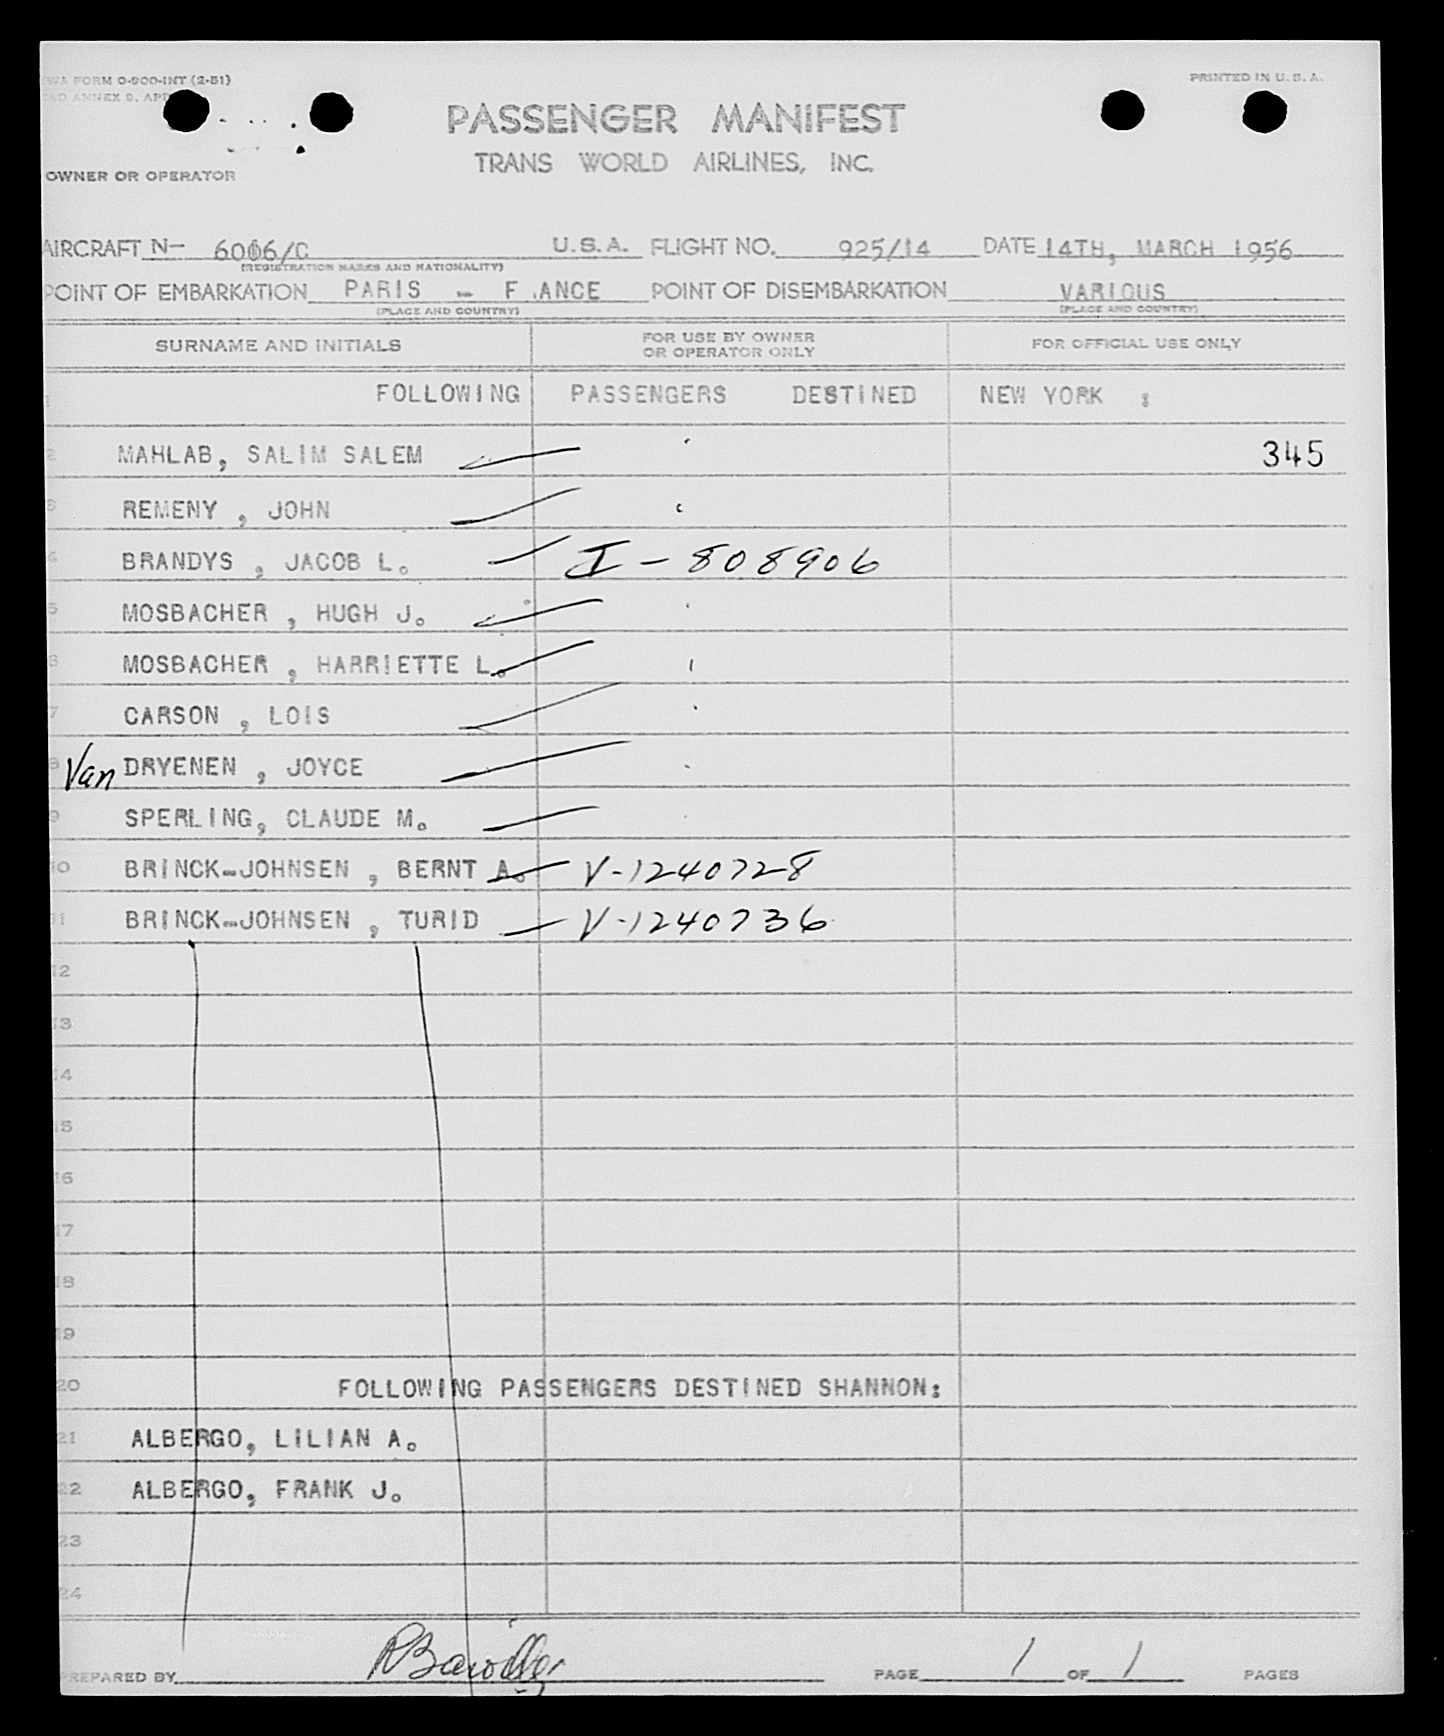 WA FORM O-900-INT (2-51)
PRINTED IN U.S.A.
ANNEX 9,
PASSENGER MANIFEST
TRANS WORLD AIRLINES, INC.
OWNER OR OPERATOR
AIRCRAFT N- 6006/C U.S.A. FLIGHT NO. 925/14 DATE 14TH, MARCH 1956
(REGISTRATION MARKS AND NATIONALITY)
POINT OF EMBARKATION PARIS - F ANCE POINT OF DISEMBARKATION VARIOUS
(PLACE AND COUNTRY) (PLACE AND COUNTRY)
SURNAME AND INITIALS FOR USE BY OWNER OR OPERATOR ONLY FOR OFFICIAL USE ONLY
1 FOLLOWING PASSENGERS DESTINED NEW YORK :
2 MAHLAB, SALIM SALEM 345
3 REMENY , JOHN
4 BRANDYS , JACOB L. I-808906
5 MOSBACHER , HUGH J.
6 MOSBACHER , HARRIETTE L.
7 CARSON , LOIS
8 Van DRYENEN , JOYCE
9 SPERLING, CLAUDE M.
10 BRINCK-JOHNSEN , BERNT A. V-1240728
11 BRINCK-JOHNSEN , TURID V-1240736
12
13
14
15
16
17
18
19
20 FOLLOWING PASSENGERS DESTINED SHANNON:
21 ALBERGO, LILIAN A.
22 ALBERGO, FRANK J.
23
24
PREPARED BY PAGE 1 OF 1 PAGES